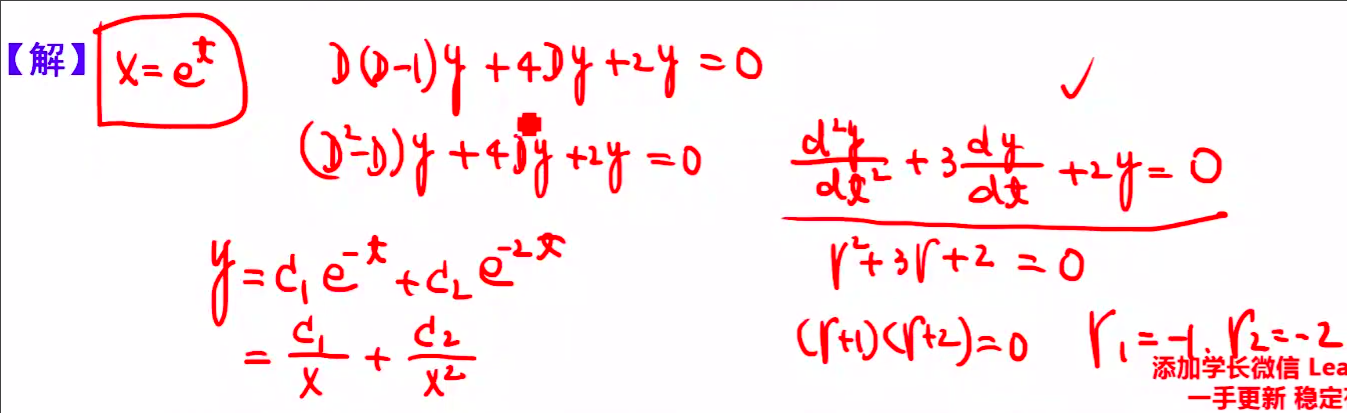 【解】 x=e^t D(D-1)y+4Dy+2y=0 ✓
(D²-D)y+4Dy+2y=0
d²y/dt²+3dy/dt+2y=0
r²+3r+2=0
(r+1)(r+2)=0 r₁=-1, r₂=-2
y=C₁e^{-t}+C₂e^{-2t}
=C₁/x+C₂/x²
添加学长微信 Lea
一手更新 稳定